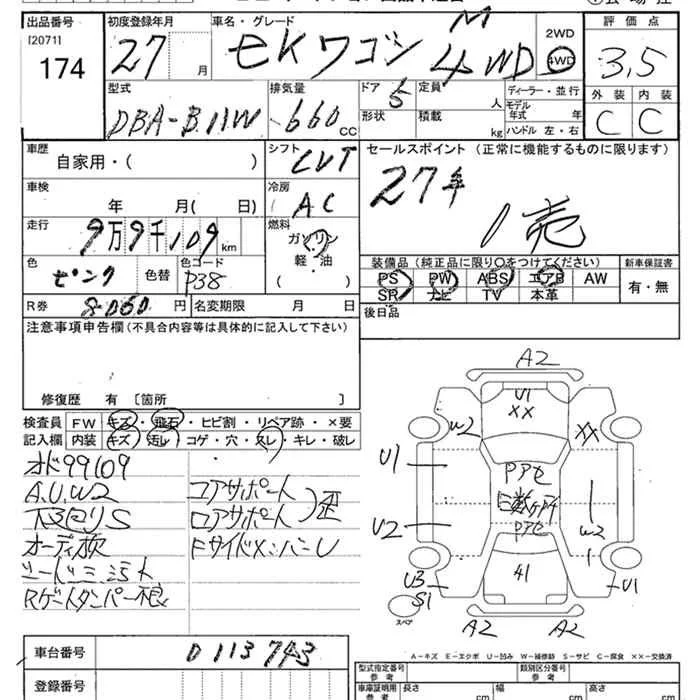 出品番号 初度登録年月 車名・グレード 評価点
[20711]
174
27 月
eKワゴン M 4WD
2WD
4WD
3.5
型式 排気量 ドア 定員 ディーラー・並行 外装 内装
DBA-B11W 660 CC 5 人
形状 積載 kg
モデル年式 年
ハンドル 左・右
C C
車歴 シフト セールスポイント (正常に機能するものに限ります)
自家用・( ) CVT
車検 冷房
年 月( 日) AC
27年
1売
走行 燃料
9万9千109 km
ガソリン
軽・油
( )
色 色替 色コード
ピンク P38
装備品 (純正品に限り〇をつけてください) 新車保証書
PS PW ABS エアB AW 有・無
SR ナビ TV 本革
R券 8060 円 名変期限 月 日
後日品
注意事項申告欄 (不具合内容等は具体的に記入して下さい)
修復歴 有 [箇所 ]
検査員 FW キズ・飛石・ヒビ割・リペア跡・×要
記入欄 内装 キズ・汚レ・コゲ・穴・スレ・キレ・破レ
オド99109
A.U.W2 コアサポート
下廻りS ロアサポート ) 歪
オーディオ欠 FサイドメンバーU
シートシミ汚れ
Rゲートダンパー不良
A2
U1
XX
W2
XX
U1
Pアセ
E数ヶ所
Pアセ
U2
W2
41
U3
S1
U1
スペア
A2 A2
A-キズ E-エクボ U-凹み W-補修跡 S-サビ C-腐食 ××-交換済
車台番号 0113743
登録番号
型式指定番号 類別区分番号
参考 参考
車庫証明用 長さ cm 幅 cm 高さ cm